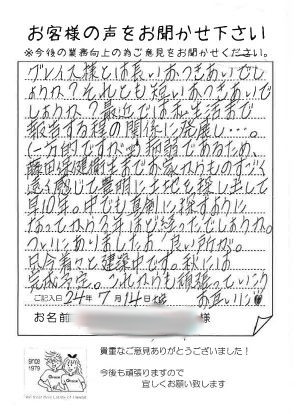 お客様の声をお聞かせ下さい
※今後の業務向上の為ご意見をお聞かせください。
グレイス様とは長いおつきあいでし
ょうか?それとも短いおつきあいで
しょうか?最近では私生活まで
報告する程の関係に発展し…。
(一方的ですが)病弱であるため、
藤田保健衛生までお家からものすごく
遠く感じて豊明に土地を探し出して
早10年。中でも真剣に探すように
なってから5年ほど経ったでしょうか。
ついにありました お良い所が。
只今着々と建築中です。秋には
完成予定。これからも頑張っていこう
お互いに
ご記入日 24年 7月14日
お名前 様
since
1979
貴重なご意見ありがとうございました!
今後も頑張りますので
宜しくお願い致します